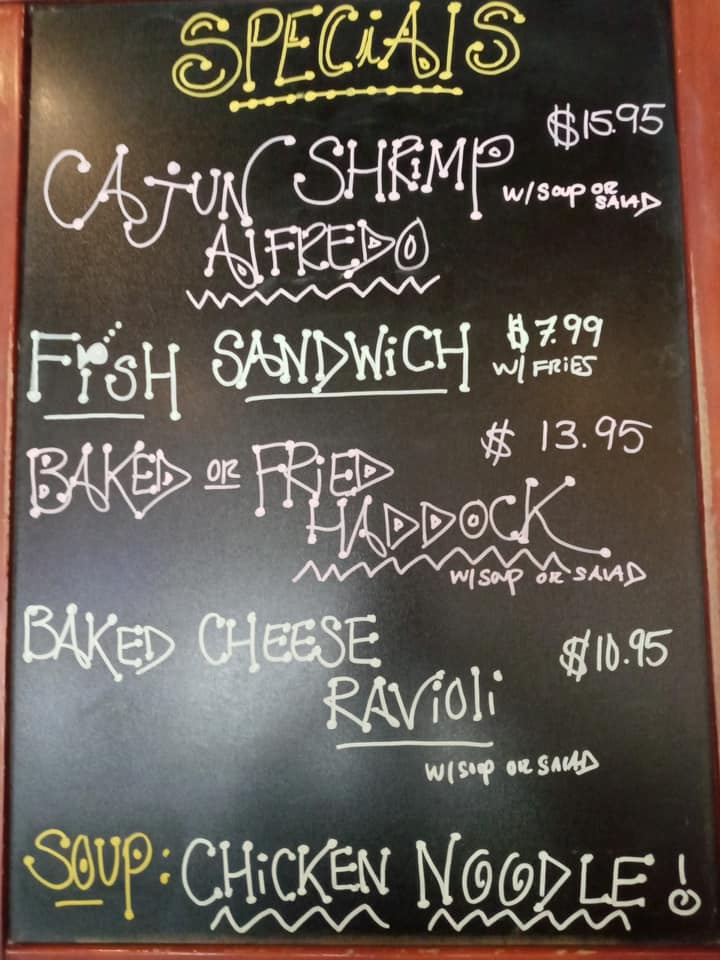 SPECiAlS
CAJUN SHRiMP $15.95
w/ Soup OR SALAD
AlFREDO
FiSH SANDWiCH $7.99
w/ FRiES
BAKED OR FRiED $ 13.95
HADDOCK
w/ Soup OR SALAD
BAKED CHEESE
RAViOli $10.95
w/ Soup OR SALAD
SOUP: CHiCKEN NOODLE!